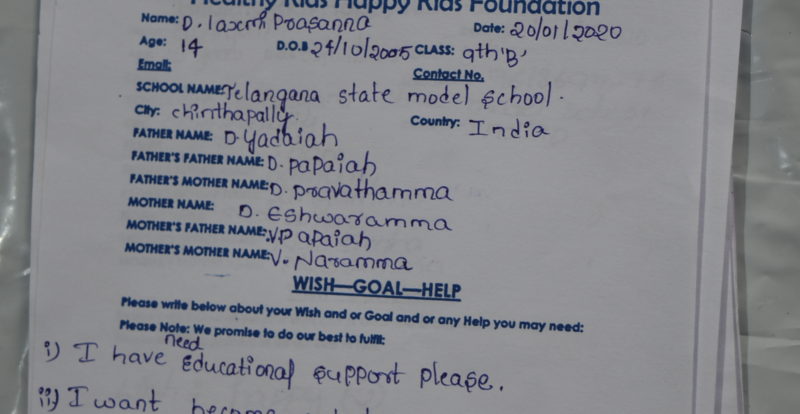 Healthy Kids Happy Kids Foundation
Name: D. laxmi Prasanna Date: 20/01/2020
Age: 14 D.O.B 24/10/2005 CLASS: 9th 'B'
Email: Contact No.
SCHOOL NAME: Telangana state model school.
City: chinthapally Country: India
FATHER NAME: D. yadaiah
FATHER'S FATHER NAME: D. papaiah
FATHER'S MOTHER NAME: D. pravathamma
MOTHER NAME: D. Eshwaramma
MOTHER'S FATHER NAME: V. Papaiah
MOTHER'S MOTHER NAME: V. Naramma
WISH—GOAL—HELP
Please write below about your Wish and or Goal and or any Help you may need:
Please Note: We promise to do our best to fulfil:
i) I have need Educational support please.
ii) I want become